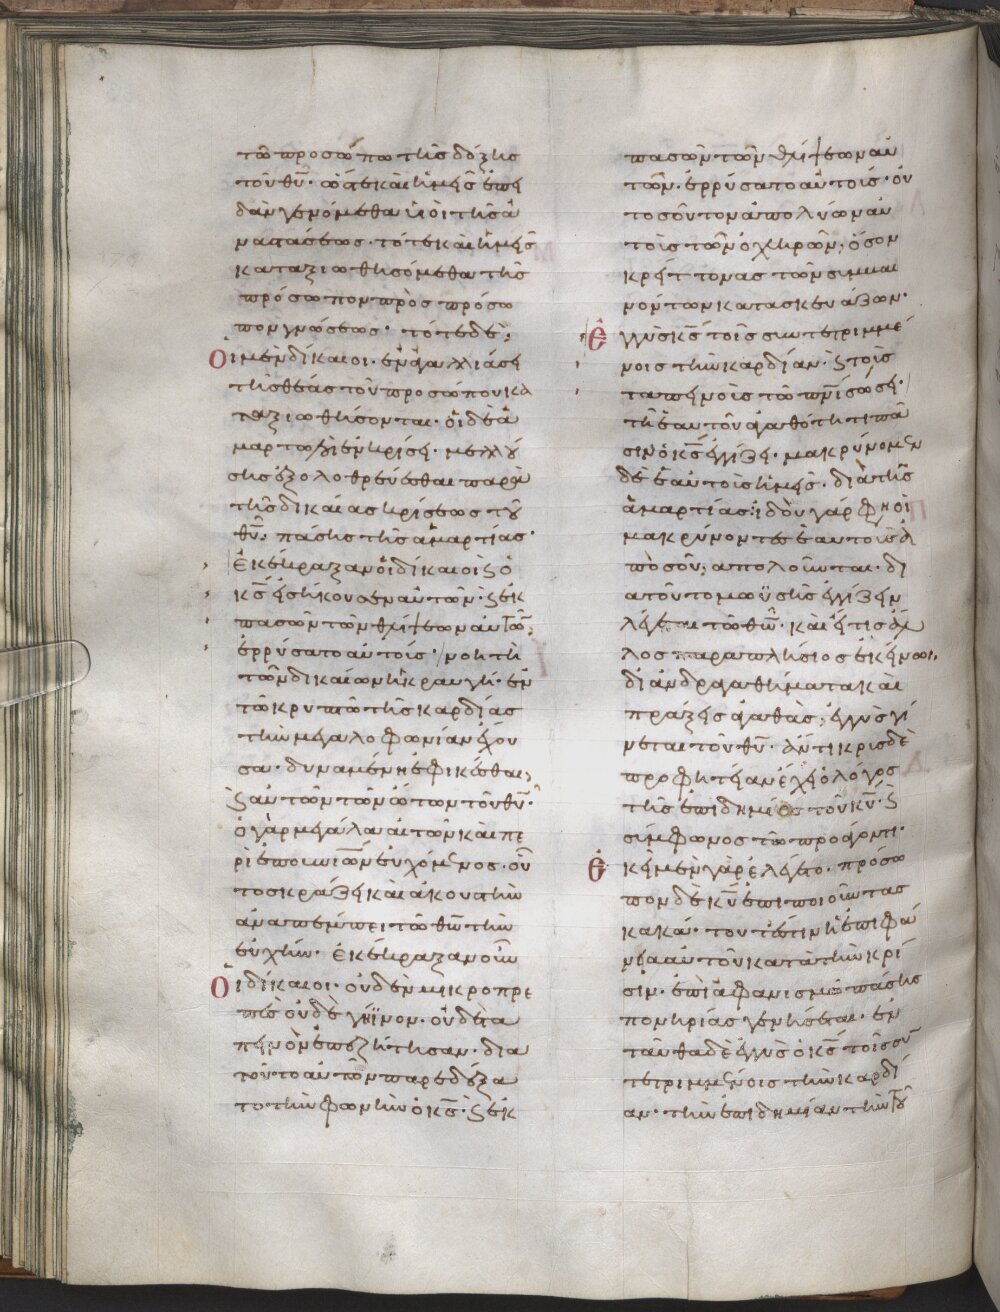 τῶ προσώπω τῆς δόξης
τοῦ θῦ· ὥστε και ἡμεῖς ἐπει
δὰν γενόμεθα υἱοὶ τῆς ἀ
ναστάσεως· τότε και ἡμεῖς
καταξιωθησόμεθα τῆς
πρόσωπον πρὸς πρόσω
πον γνώσεως· τότε δὲ,
Οἱ μὲν δίκαιοι ἐν ἀγαλλιάσει
τῆς θέας τοῦ προσώπου κα
ταξιωθήσονται· οἱ δὲ ἁ
μαρτωλοὶ ἐν κρίσει· μελλού
σης ἐξολοθρεύεσθαι παρὰ
τῆς δικαίας κρίσεως τοῦ
θῦ· πάσης τῆς ἁμαρτίας·
ἐκέκραξαν οἱ δίκαιοι ϗ ὁ
κς εἰσήκουσεν αὐτῶν· ϗ ἐκ
πασῶν τῶν θλίψεων αὐτῶν,
ἐρρύσατο αὐτούς· νοητὴ
τῶν δικαίων ἡ κραυγὴ· ἐν
τῶ κρυπτῶ τῆς καρδίας
τὴν μεγαλοφωνίαν ἔχου
σα· δυναμένη ἐφικέσθαι,
ϗ αὐτῶν τῶν ὤτων τοῦ θῦ·
ὁ γὰρ μεγάλα αἰτῶν και πε
ρὶ ἐπουρανίων εὐχόμενος· οὗ
τος κράζει και ἀκουστὴν
ἀναπέμπει τῶ θῶ τὴν
εὐχήν· ἐκέκραξαν οὖν
Οἱ δίκαιοι· οὐδὲν μικροπρε
πὲς οὐδὲ γήϊνον· οὐδὲ τα
πεινὸν ἐπεζήτησαν· δια
τοῦτο αὐτῶν παρεδέξα
το τὴν φωνὴν ὁ κς· ϗ ἐκ
πασῶν τῶν θλίψεων αὐ
τῶν· ἐρρύσατο αὐτούς· οὐ
τοσοῦτον ἀπολύων αὐ
τοὺς τῶν ὀχληρῶν, ὅσον
κρείττονας τῶν συμβαι
νόντων κατασκευάζων·
Ἐγγὺς κς τοῖς συντετριμμέ
νοις τὴν καρδίαν· ϗ τοὺς
ταπεινοὺς τῶ πνι σώσει·
τῆ ἑαυτοῦ ἀγαθότητι πᾶ
σιν ὁ κς ἐγγίζει· μακρύνομεν
δὲ ἑαυτοὺς ἡμεῖς· διὰ τῆς
ἁμαρτίας· ἰδοὺ γάρ φησιν οἱ
μακρύνοντες ἑαυτοὺς ἀ
πὸ σοῦ, ἀπολοῦνται· δι
α τοῦτο μωϋσῆς ἐγγίζειν
λέγεται τῶ θῶ· και εἴ τις ἄλ
λος παραπλήσιος ἐκείνωι,
δι ἀνδραγαθήματα και
πράξεις ἀγαθὰς, ἐγγὺς γί
νεται τοῦ θῦ· ἄντικρυς δὲ
προφητείαν ἔχει ὁ λόγος
τῆς ἐπιδημίας τοῦ κῦ· ϗ
σύμφωνος τῶ προάγοντι·
Ἐκεῖ μὲν γὰρ ἐλέγετο· πρόσω
πον δὲ κῦ ἐπὶ ποιοῦντας
κακά· τουτέστιν ἡ ἐπιφά
νεια αὐτοῦ κατὰ τὴν κρί
σιν· ἐπὶ ἀφανισμῶ πάσης
πονηρίας γενήσεται· ἐν
ταῦθα δὲ ἐγγὺς ὁ κς τοῖς συν
τετριμμένοις τὴν καρδί
αν· τὴν ἐπιδημίαν τὴν τοῦ